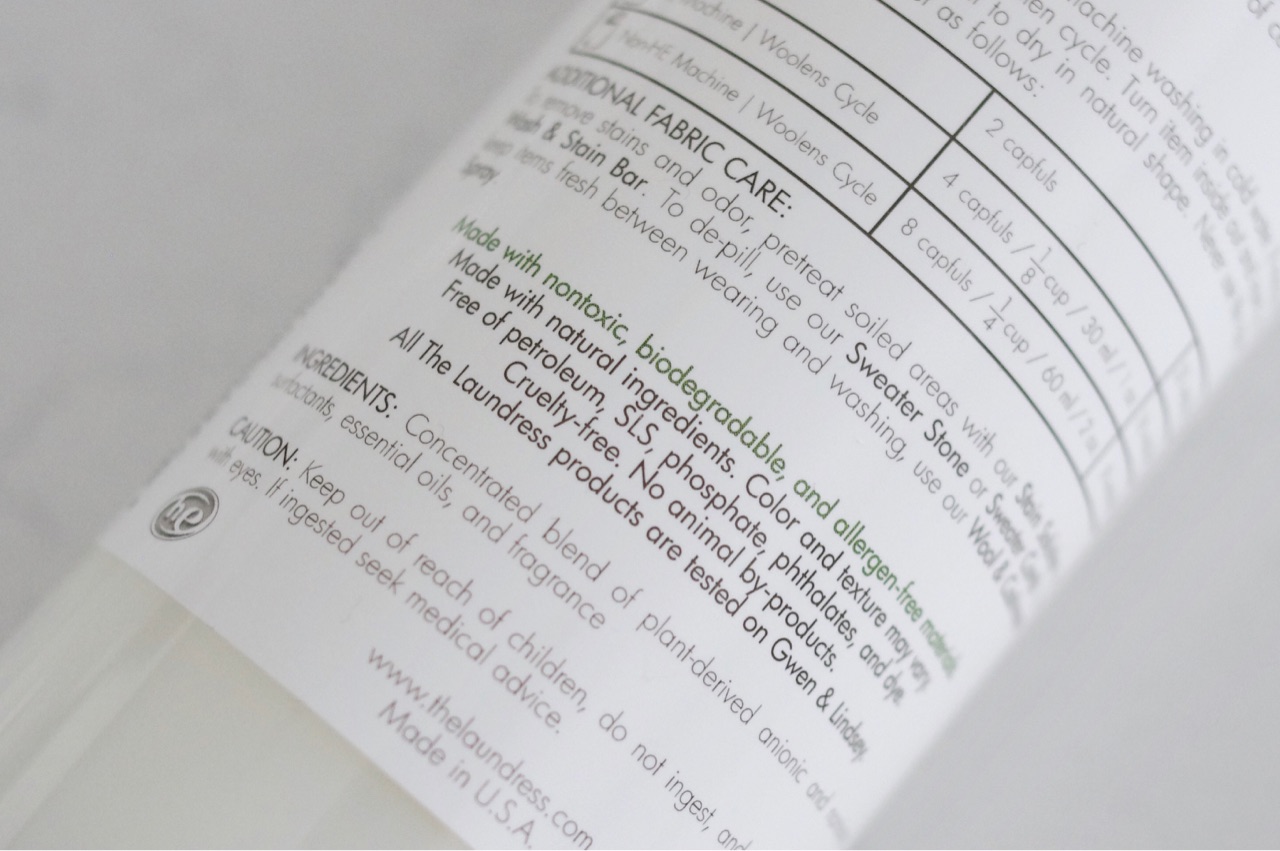 of
machine washing in cold
cycle. Turn item inside out
to dry in natural shape. Never
as follows:
2 capfuls
Machine | Woolens Cycle 4 capfuls / 1/8 cup / 30 ml / 1
Non-HE Machine | Woolens Cycle 8 capfuls / 1/4 cup / 60 ml / 2
ADDITIONAL FABRIC CARE:
To remove stains and odor, pretreat soiled areas with our Stain
Wash & Stain Bar. To de-pill, use our Sweater Stone or Sweater
items fresh between wearing and washing, use our Wool &
Spray
Made with nontoxic, biodegradable, and allergen-free materials
Made with natural ingredients. Color and texture may vary
Free of petroleum, SLS, phosphate, phthalates, and dye.
Cruelty-free. No animal by-products.
All The Laundress products are tested on Gwen & Lindsey.
INGREDIENTS: Concentrated blend of plant-derived anionic and
surfactants, essential oils, and fragrance
CAUTION: Keep out of reach of children, do not ingest, and
with eyes. If ingested seek medical advice.
www.thelaundress.com
Made in U.S.A.